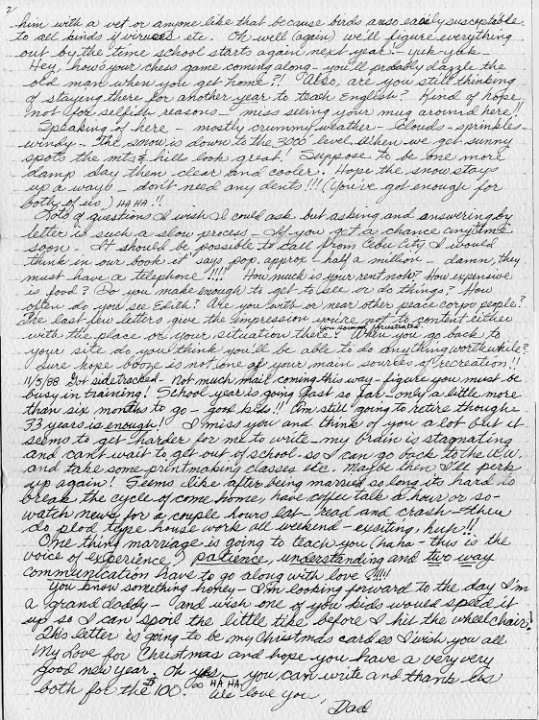 2
him with a vet or anyone like that because birds are so easily susceptible
to all kinds of viruses etc. Oh well (again) we'll figure everything
out by the time school starts again next year - yuk-yuk -
Hey, how's your chess game coming along - you'll probably dazzle the
old man when you get home?! Also, are you still thinking
of staying there for another year to teach English? Kind of hope
not for selfish reasons - miss seeing your mug around here!!
Speaking of here - mostly crummy weather - clouds - sprinkles -
windy - The snow is down to the 3000 level. When we get sunny
spots the mts & hills look great! Suppose to be one more
damp day then clear and cooler. Hope the snow stays
up a ways - don't need any dents!!! (You've got enough for
both of us) HA HA!!
Lots of questions I wish I could ask but asking and answering by
letter is such a slow process - If you get a chance anytime
soon. It should be possible to call from Cebu City I would
think in our book it says pop. approx - half a million - damn, they
must have a telephone!!!! How much is your rent now? How expensive
is food? Do you make enough to get to see or do things? How
often do you see Edith? Are you with or near other peace corps people?
The last few letters give the impression you're not to content either
with the place or your situation there? you sound frustrated. When you go back to
your site do you think you'll be able to do anything worthwhile?
Sure hope booze is not one of your main sources of recreation!!
11/5/88 Got sidetracked - Not much mail coming this way - figure you must be
busy in training! School year is going fast so far - only a little more
than six months to go - good kids!! I'm still going to retire though -
33 years is enough! I miss you and think of you a lot but it
seems to get harder for me to write - my brain is stagnating
and can't wait to get out of school - so I can go back to the U.W.
and take some printmaking classes etc. Maybe then I'll perk
up again! Seems like after being married so long its hard to
break the cycle of come home, have coffee talk a hour or so -
watch news for a couple hours eat - read and crash - then
do plod type house work all weekend - exciting, huh!!
One thing marriage is going to teach you (haha - this is the
voice of experience) patience, understanding and two way
communication have to go along with love!!!!!
You know something honey - I'm looking forward to the day I'm
a grand daddy - and wish one of you kids would speed it
up so I can spoil the little tike before I hit the wheel chair!
This letter is going to be my Christmas card so I wish you all
My Love for Christmas and hope you have a very very
good new year. Oh yes, you can write and thank us
both for the $100.00 HA HA
We love you,
Dad